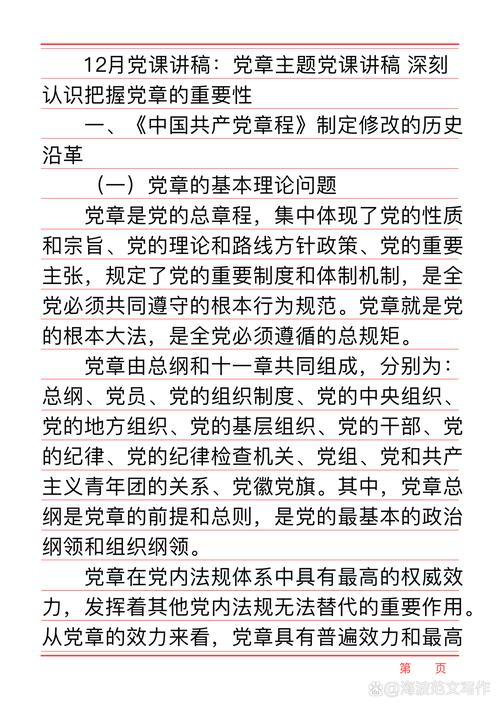 12月党课讲稿：党章主题党课讲稿 深刻
认识把握党章的重要性
一、《中国共产党章程》制定修改的历史
沿革
（一）党章的基本理论问题
党章是党的总章程，集中体现了党的性质
和宗旨、党的理论和路线方针政策、党的重要
主张，规定了党的重要制度和体制机制，是全
党必须共同遵守的根本行为规范。党章就是党
的根本大法，是全党必须遵循的总规矩。
党章由总纲和十一章共同组成，分别为：
总纲、党员、党的组织制度、党的中央组织、
党的地方组织、党的基层组织、党的干部、党
的纪律、党的纪律检查机关、党组、党和共产
主义青年团的关系、党徽党旗。其中，党章总
纲是党章的前提和总则，是党的最基本的政治
纲领和组织纲领。
党章在党内法规体系中具有最高的权威效
力，发挥着其他党内法规无法替代的重要作用。
从党章的效力来看，党章具有普遍效力和最高
第 页
@海波范文写作